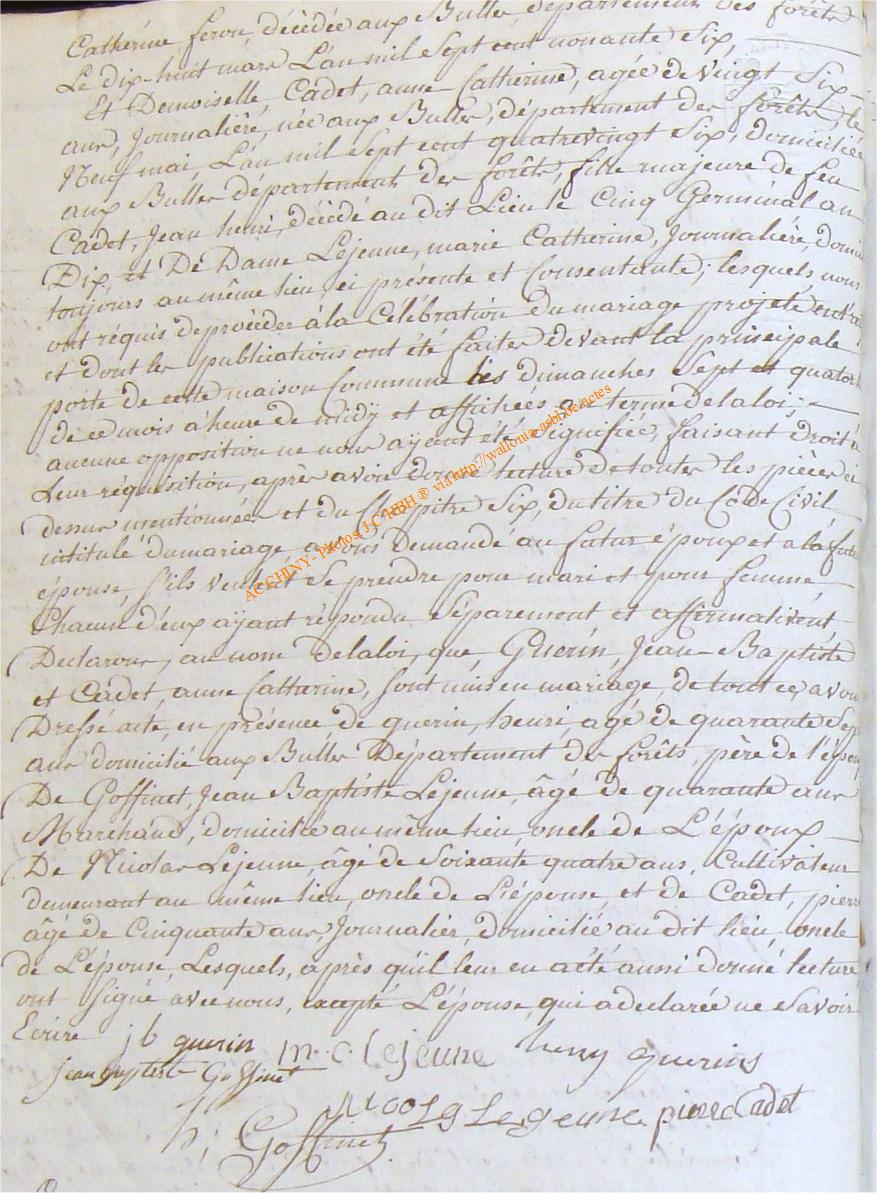 Catherine feron, décédée aux Bulles, departement des forêts
Le dix-huit mars L'an mil Sept cent nonante Six,
Et Demoiselle, Cadet, anne Catherine, agée de vingt Six
ans, Journaliére, née aux Bulles, département des forêts, le
Neuf mai, L'an mil Sept cent quatrevingt Six, domiciliée
aux Bulles département des forêts, fille majeure de feu
Cadet, Jean henri, décédé au dit Lieu le Cinq Germinal an
Dix, et De Dame Lejeune, marie Catherine, Journalière, domi
toujours au même lieu, ici présente et Consentante; lesquels nous
ont réquis de procéder à la Célébration du mariage projeté entr'
et dont les publications ont été faites devant la principale
porte de cette maison Commune les dimanches Sept et quator
de ce mois à heure de midÿ et affichées au terme de la loi;
aucune opposition ne nous aÿant été Signifiée, faisant droit à
Leur réquisition, après avoir donné lecture de toutes les pièces ci
dessus mentionnées et du Chapitre Six, du titre du Code Civil
intitulé du mariage, avons demandé au futur époux et a la futu
épouse, s'ils veulent Se prendre pour mari et pour femme
Chacun d'eux aÿant répondu Séparement et affirmativent
Declarons, au nom de la loi, que, Guerin, Jean-Baptiste
et Cadet, anne Catharine, Sont unis en mariage, de tout ce, avons
Dressé acte, en présence de guerin, henri, agé de quarante Sep
ans domicilié aux Bulles Département des forêts, père de l'épou
De Goffinet, Jean Baptiste Lejeune, âgé de quarante ans
Marchand, domicilié au même lieu, oncle de L'époux
De Nicolas Lejeune, âgé de Soixante quatre ans, Cultivateur
demeurant au même lieu, oncle de L'épouse, et de Cadet, pierre
âgé de Cinquante ans, Journalier, domicilié au dit lieu, oncle
de L'épouse, Lesquels, après qu'il leur en a été aussi donné lecture
ont Signé avec nous, excepté L'épouse, qui a declarée ne Savoir
Ecrire j b guerin m. c. lejeune henry guerins
jean baptiste Goffinet
Nicolas Legeune pierre Cadet
h; Goffinet
ACCHINY - Photos J.C. HBH ® via http://wallonia-asbl.be/actes